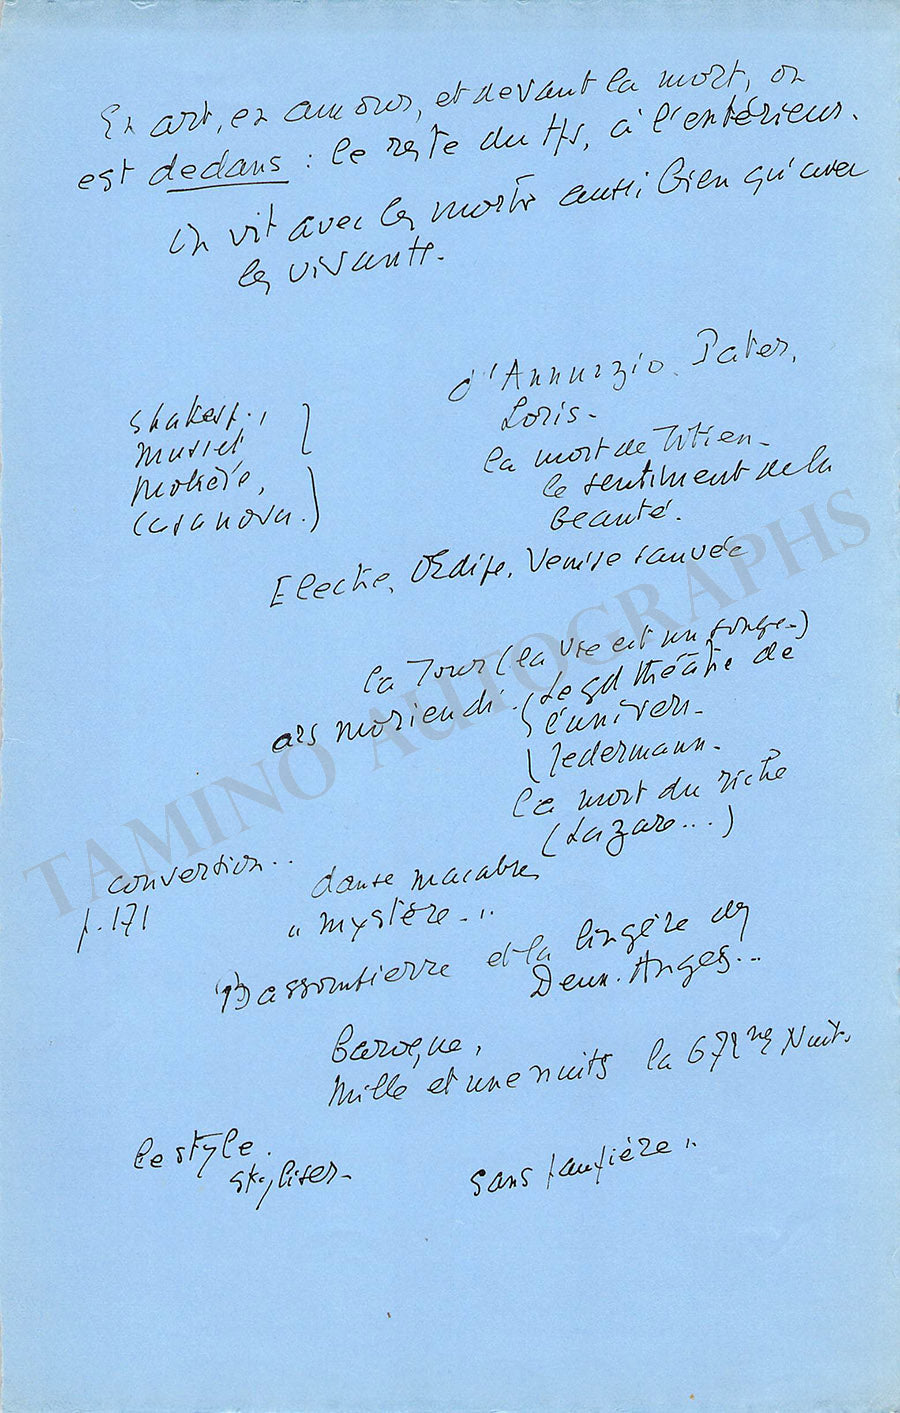 En art, en amour, et devant la mort, on
est dedans : le reste du tps, à l'extérieur.
On vit avec les morts aussi bien qu'avec
les vivants.
d'Annunzio. Pater.
Loris.
Shakesp.,
Musset
Molière,
Casanova.)
la mort de Titien.
le sentiment de la
beauté.
Electre, Œdipe, Venise sauvée
la Tour (la vie est un songe.)
ars moriendi. (Le gd théâtre de
l'univers.
Jedermann.
la mort du riche
(Lazare...)
conversion..
p. 171
danse macabre
"mystère."
Bassompierre et la lingère des
Deux-Anges...
baroque,
Mille et une nuits la 672me Nuit.
le style.
styliser.
sans paupière..
TAMINO AUTOGRAPHS